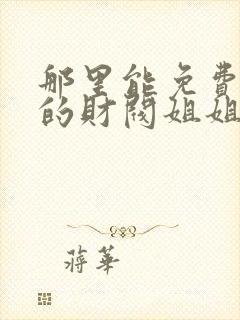 那里能免費
的財閥姐姐
蔣華